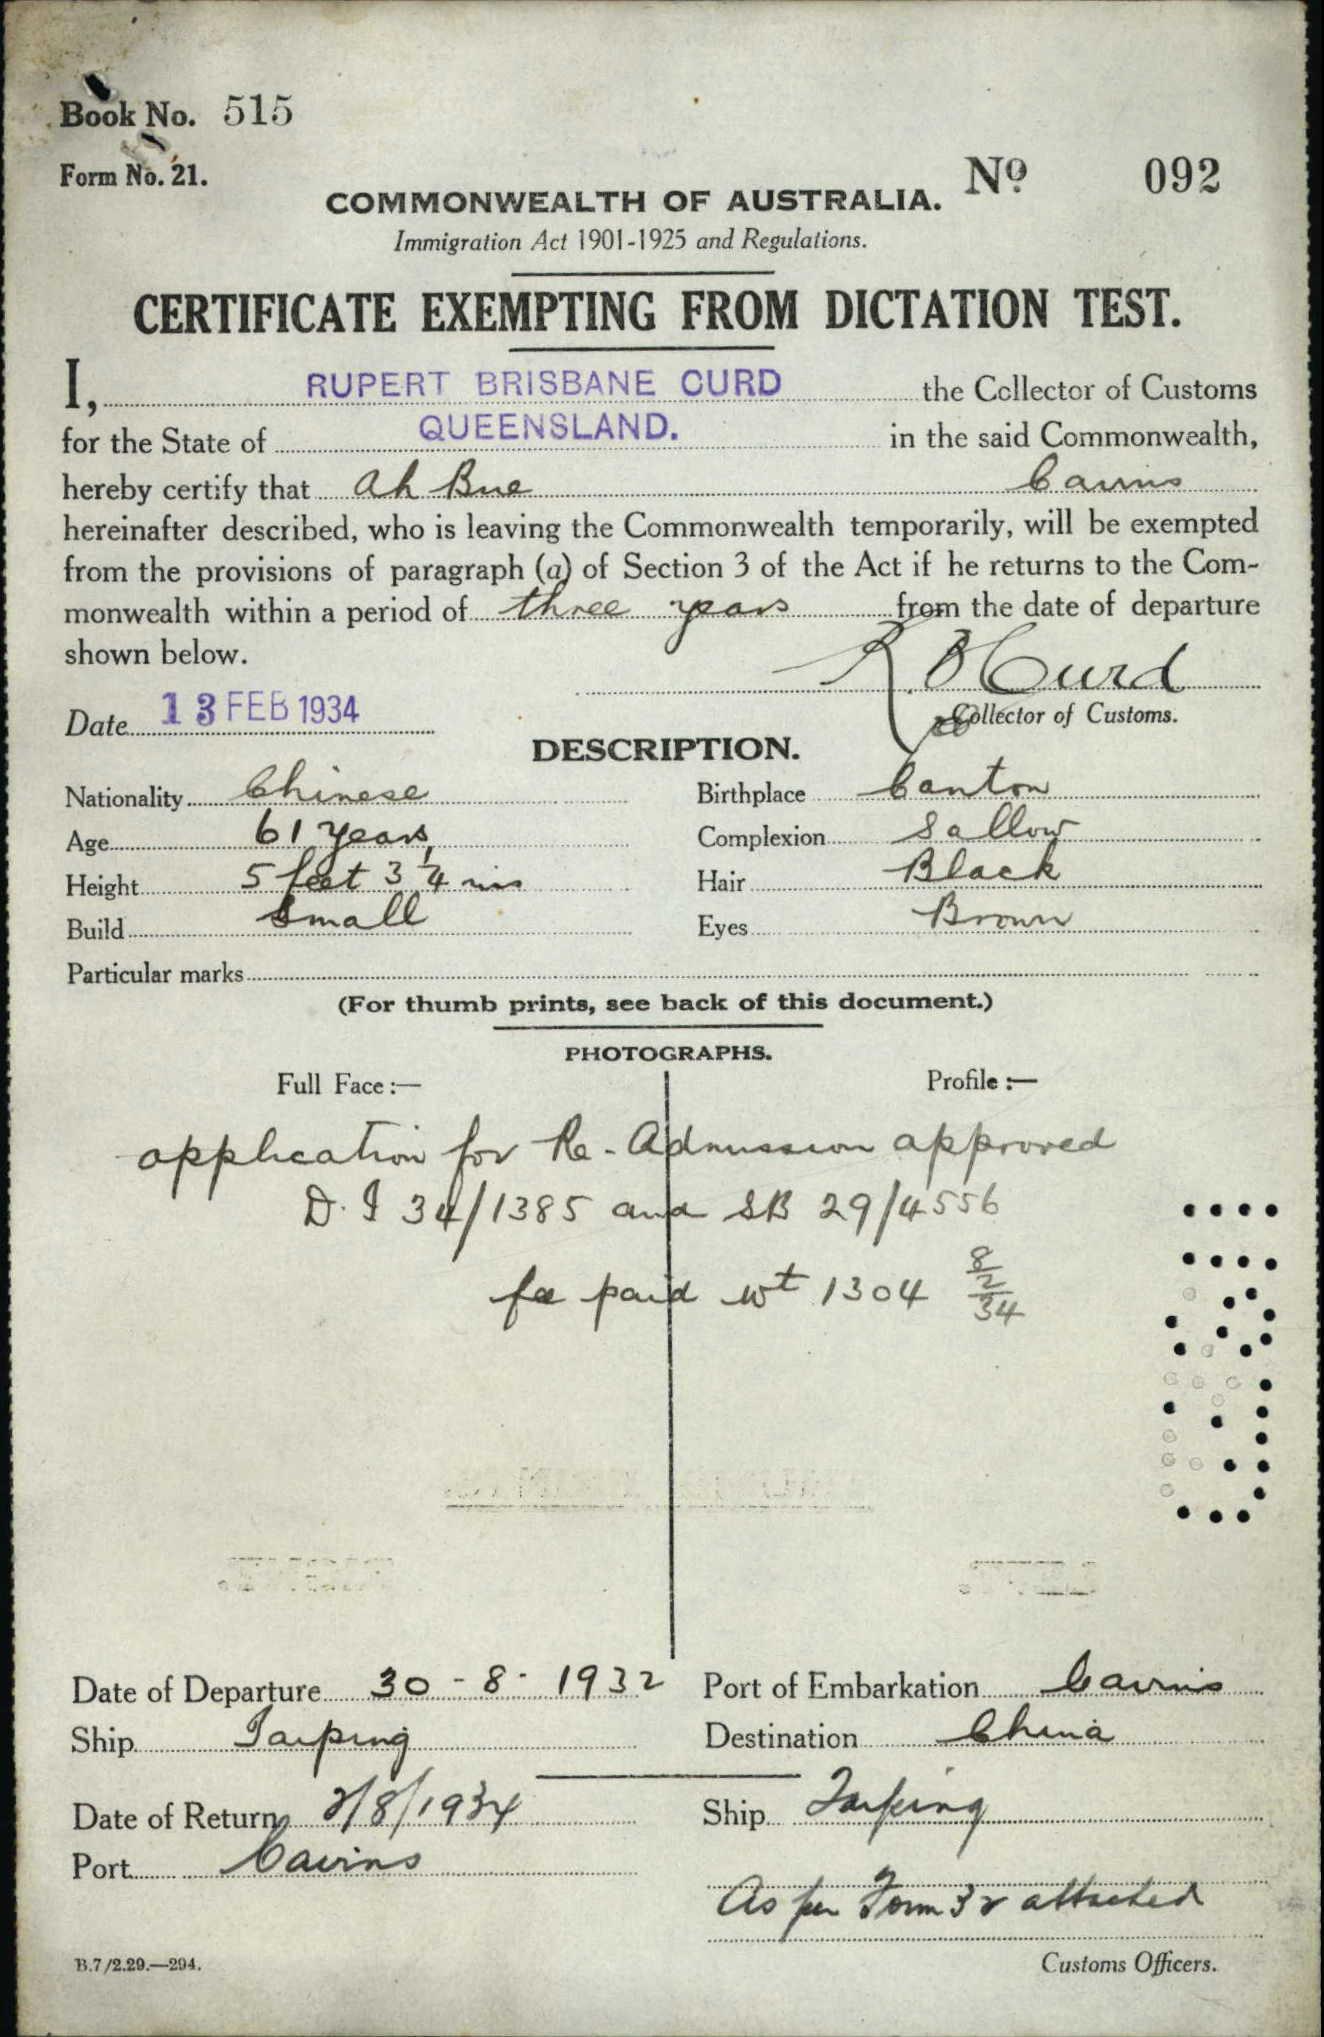 Book No. 515
Form No. 21.
No 092
COMMONWEALTH OF AUSTRALIA.
Immigration Act 1901-1925 and Regulations.
CERTIFICATE EXEMPTING FROM DICTATION TEST.
I, RUPERT BRISBANE CURD the Collector of Customs
for the State of QUEENSLAND. in the said Commonwealth,
hereby certify that Ah Bue Cairns
hereinafter described, who is leaving the Commonwealth temporarily, will be exempted
from the provisions of paragraph (a) of Section 3 of the Act if he returns to the Com-
monwealth within a period of three years from the date of departure
shown below.
R B Curd
Date 13 FEB 1934
Collector of Customs.
DESCRIPTION.
Nationality Chinese Birthplace Canton
Age 61 years Complexion Sallow
Height 5 feet 3 1/4 ins Hair Black
Build Small Eyes Brown
Particular marks
(For thumb prints, see back of this document.)
PHOTOGRAPHS.
Full Face:— Profile:—
application for Re-Admission approved
D. I 34/1385 and SB 29/4556
fee paid wt 1304 8/2/34
Date of Departure 30-8-1932 Port of Embarkation Cairns
Ship Taiping Destination China
Date of Return 2/8/1934 Ship Taiping
Port Cairns
As per Form 32 attached
B.7/2.29.—294. Customs Officers.